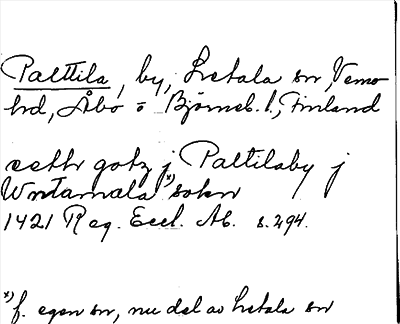 Palttila, by, Letala sn, Vemo
hd, Åbo o Björneb. l., Finland
eeth gotz j Paltilaby j
Wntamala*) sokn
1421 Reg. Eccl. Ab. s. 294.
*) f. egen sn, nu del av Letala sn